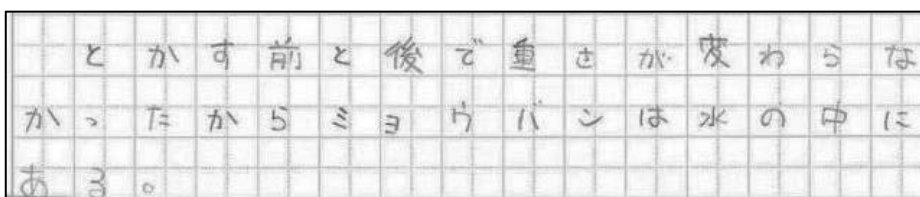 とかす前と後で重さが変わらな
かったからミョウバンは水の中に
ある。